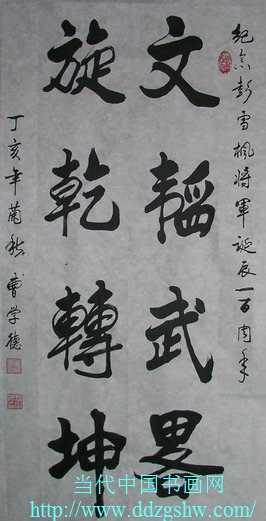 纪念彭雪枫将軍诞辰一百周年
文韜武畧
旋乾轉坤
丁亥年蘭秋曹学德
当代中国书画网
http://www.ddzgshw.com/